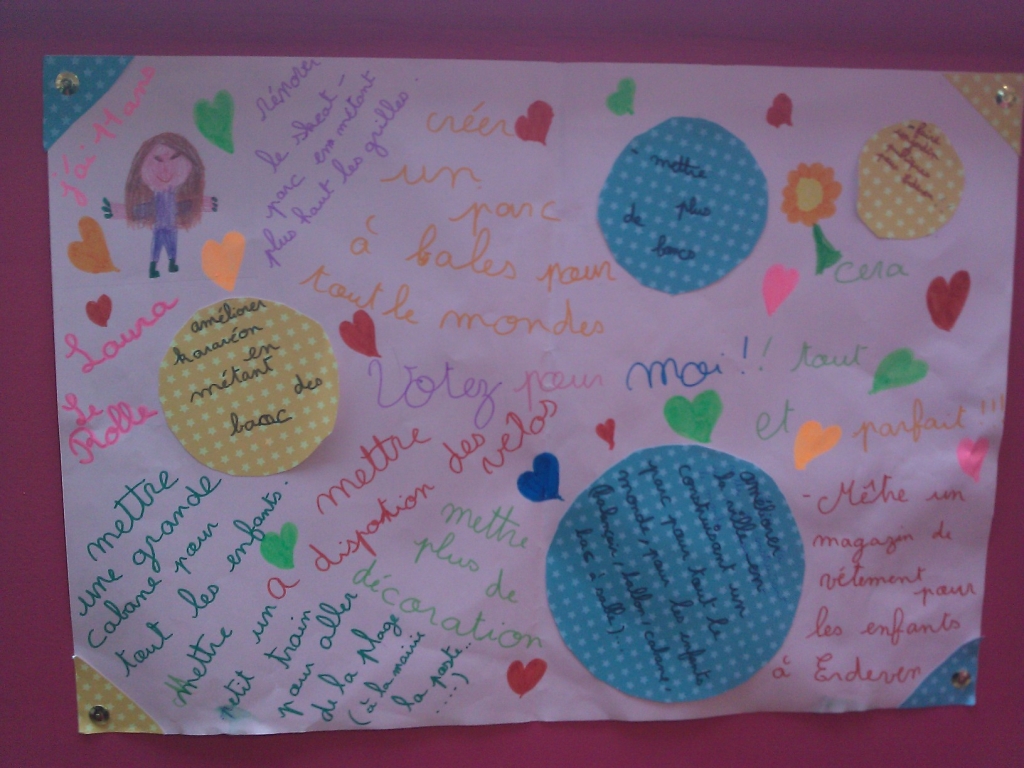 j'ai 11 ans
Laura
Le
Rolle
rénover
le skeat-
parc en métant
plus haut les grilles.
créer
un
parc
à bales pour
tout le mondes
- mettre
plus
de
bancs
améliorer
en
métant des
banc
Votez pour moi!! tout
cera
et parfait!!!
mettre
une grande
cabane pour
tout les enfants.
mettre
a disposition des
velos
Mettre un
petit train
pour aller
de la plage
(à la mairie
la poste..
...)
mettre
plus de
décoration
améliorer
la ville en
construisant un
parc pour tout le
monde, pour les enfants
(balançoir, ballon, cabane,
bac à sable).
- Mêttre un
magazin de
vêtement pour
les enfants
à Erdeven